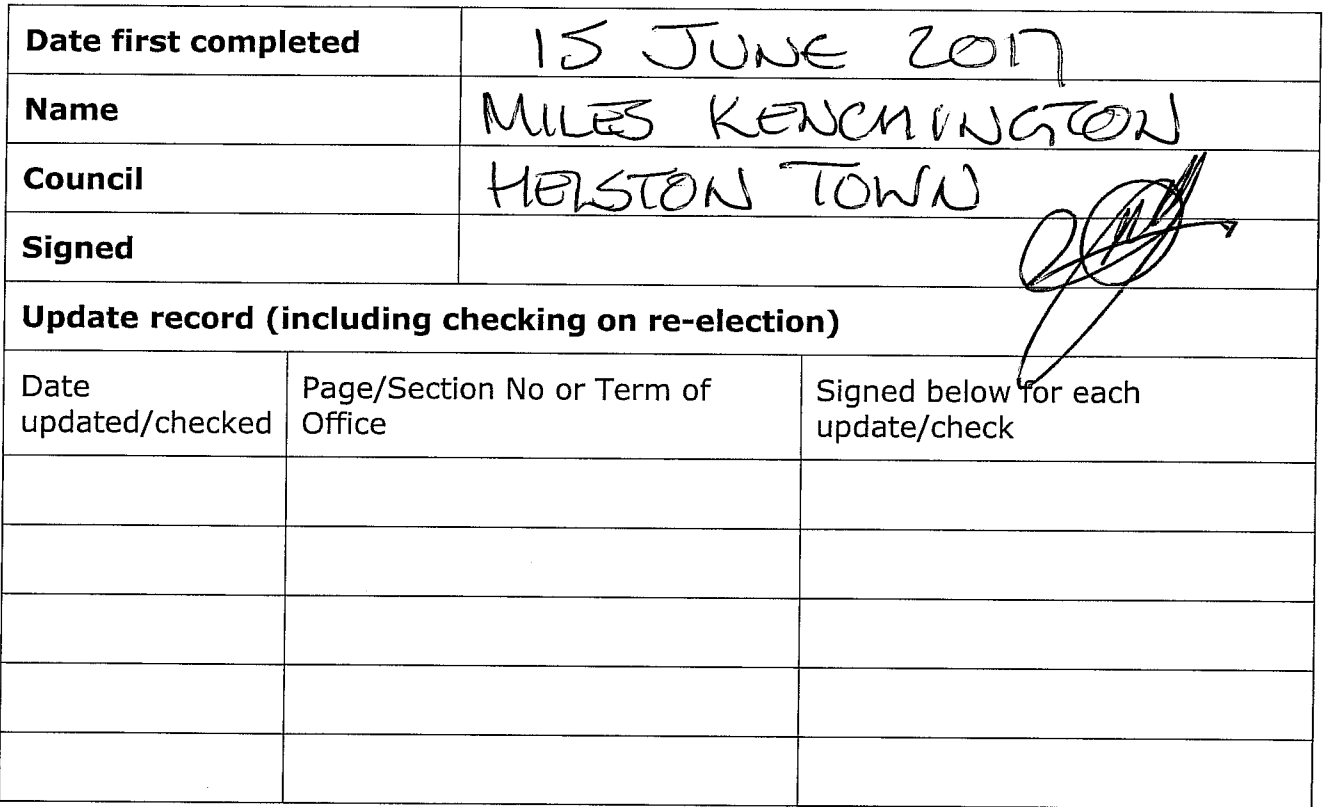 Date first completed 15 JUNE 2017
Name MILES KENCHINGTON
Council HELSTON TOWN
Signed
Update record (including checking on re-election)
Date updated/checked
Page/Section No or Term of Office
Signed below for each update/check